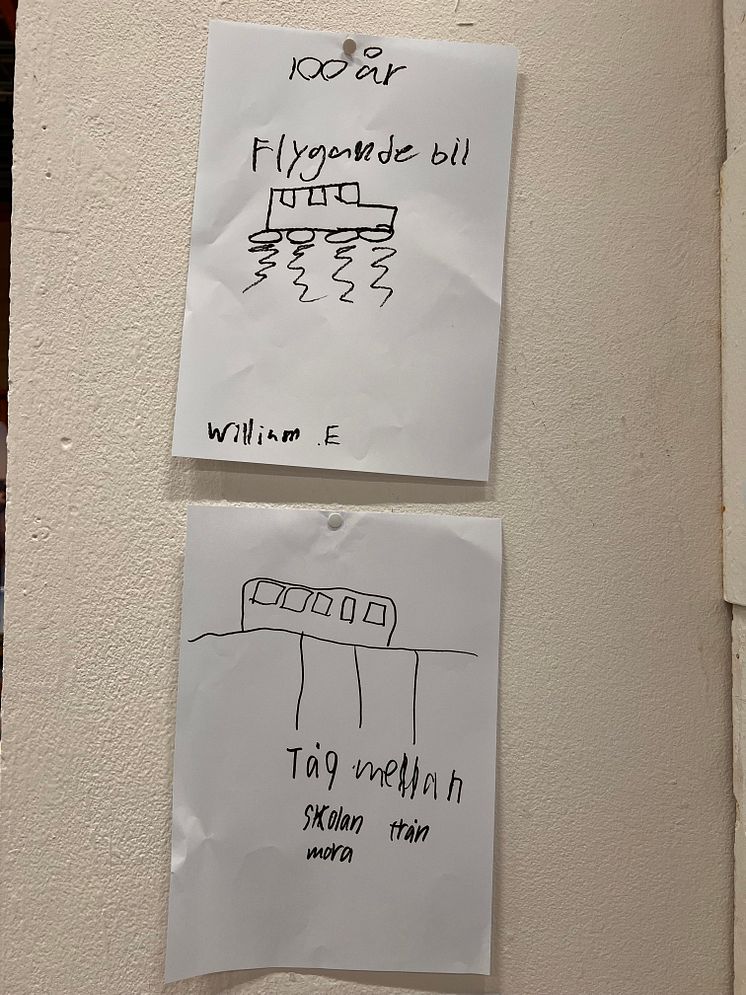 100 år
Flygande bil
William .E
Tåg mellan
skolan från
mora